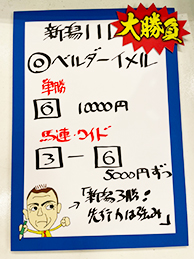 大勝負
新潟11R
◎ベルダーイメル
単勝
6 10000円
馬連・ワイド
3-6
5000円ずつ
「新潟3勝!
先行力は強み」